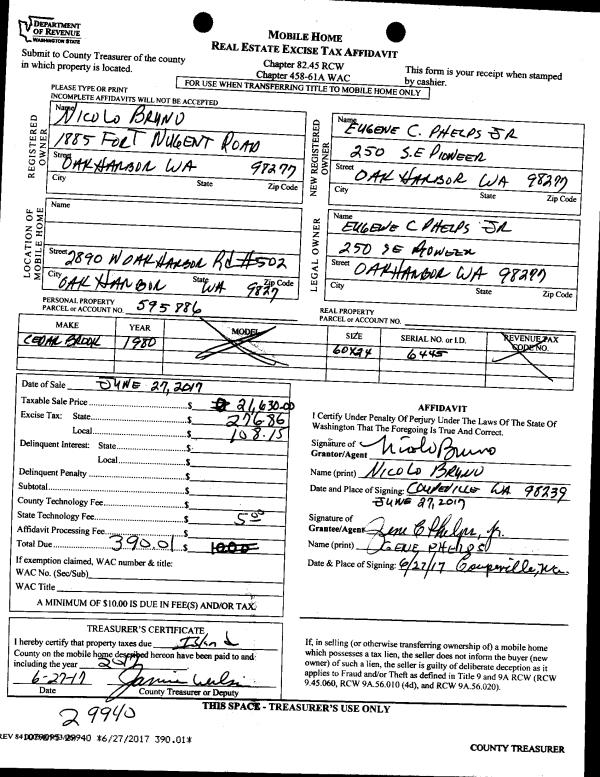 DEPARTMENT
OF REVENUE
WASHINGTON STATE
MOBILE HOME
REAL ESTATE EXCISE TAX AFFIDAVIT
Submit to County Treasurer of the county
in which property is located.
Chapter 82.45 RCW
Chapter 458-61A WAC
This form is your receipt when stamped
by cashier.
FOR USE WHEN TRANSFERRING TITLE TO MOBILE HOME ONLY
PLEASE TYPE OR PRINT
INCOMPLETE AFFIDAVITS WILL NOT BE ACCEPTED
REGISTERED OWNER
Name NICOLO BRUNO
1885 FORT NUGENT ROAD
Street OAK HARBOR WA 98277
City State Zip Code
NEW REGISTERED OWNER
Name EUGENE C. PHELPS JR
250 S.E PIONEER
Street OAK HARBOR WA 98277
City State Zip Code
LOCATION OF MOBILE HOME
Name
Street 2890 N OAK HARBOR Rd #502
City OAK HARBOR State WA Zip Code 9827
LEGAL OWNER
Name EUGENE C PHELPS JR
250 SE PIONEER
Street OAK HARBOR WA 98277
City State Zip Code
PERSONAL PROPERTY
PARCEL or ACCOUNT NO. 595886
REAL PROPERTY
PARCEL or ACCOUNT NO.
MAKE YEAR MODEL SIZE SERIAL NO. or I.D. REVENUE TAX CODE NO.
CEDAR BROOK 1980 60X24 6445
Date of Sale JUNE 27, 2017
Taxable Sale Price $ 21,630.00
Excise Tax: State $ 276.86
Local $ 108.15
Delinquent Interest: State $
Local $
Delinquent Penalty $
Subtotal $
County Technology Fee $
State Technology Fee $ 5.00
Affidavit Processing Fee $
Total Due 390.01 $ 10.00
If exemption claimed, WAC number & title:
WAC No. (Sec/Sub)
WAC Title
A MINIMUM OF $10.00 IS DUE IN FEE(S) AND/OR TAX.
AFFIDAVIT
I Certify Under Penalty Of Perjury Under The Laws Of The State Of
Washington That The Foregoing Is True And Correct.
Signature of
Grantor/Agent Nicolo Bruno
Name (print) NICOLO BRUNO
Date and Place of Signing: COUPEVILLE WA 98239
JUNE 27, 2017
Signature of
Grantee/Agent Gene C Phelps, Jr.
Name (print) GENE PHELPS
Date & Place of Signing: 6/27/17 Coupeville, Wa.
TREASURER'S CERTIFICATE
I hereby certify that property taxes due Island
County on the mobile home described hereon have been paid to and
including the year 2017
6-27-17
Date County Treasurer or Deputy
If, in selling (or otherwise transferring ownership of) a mobile home
which possesses a tax lien, the seller does not inform the buyer (new
owner) of such a lien, the seller is guilty of deliberate deception as it
applies to Fraud and/or Theft as defined in Title 9 and 9A RCW (RCW
9.45.060, RCW 9A.56.010 (4d), and RCW 9A.56.020).
29940
THIS SPACE - TREASURER'S USE ONLY
29940 *6/27/2017 390.01*
COUNTY TREASURER